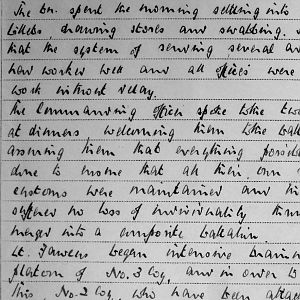 The bn. spent the morning settling into
billets, drawing stores and swabbing.
that the system of sending several
have worked well and all offices were
work without delay.
The Commanding Officer spoke to the two
at dinners welcoming them to the
assuring them that everything possible
done to ensure that all their own
customs were maintained and
suffered no loss of individuality
merged into a composite battalion.
Lt. Fawkus began intensive
platoon of No. 3 Coy, and in order to
this No. 2 Coy, who have been